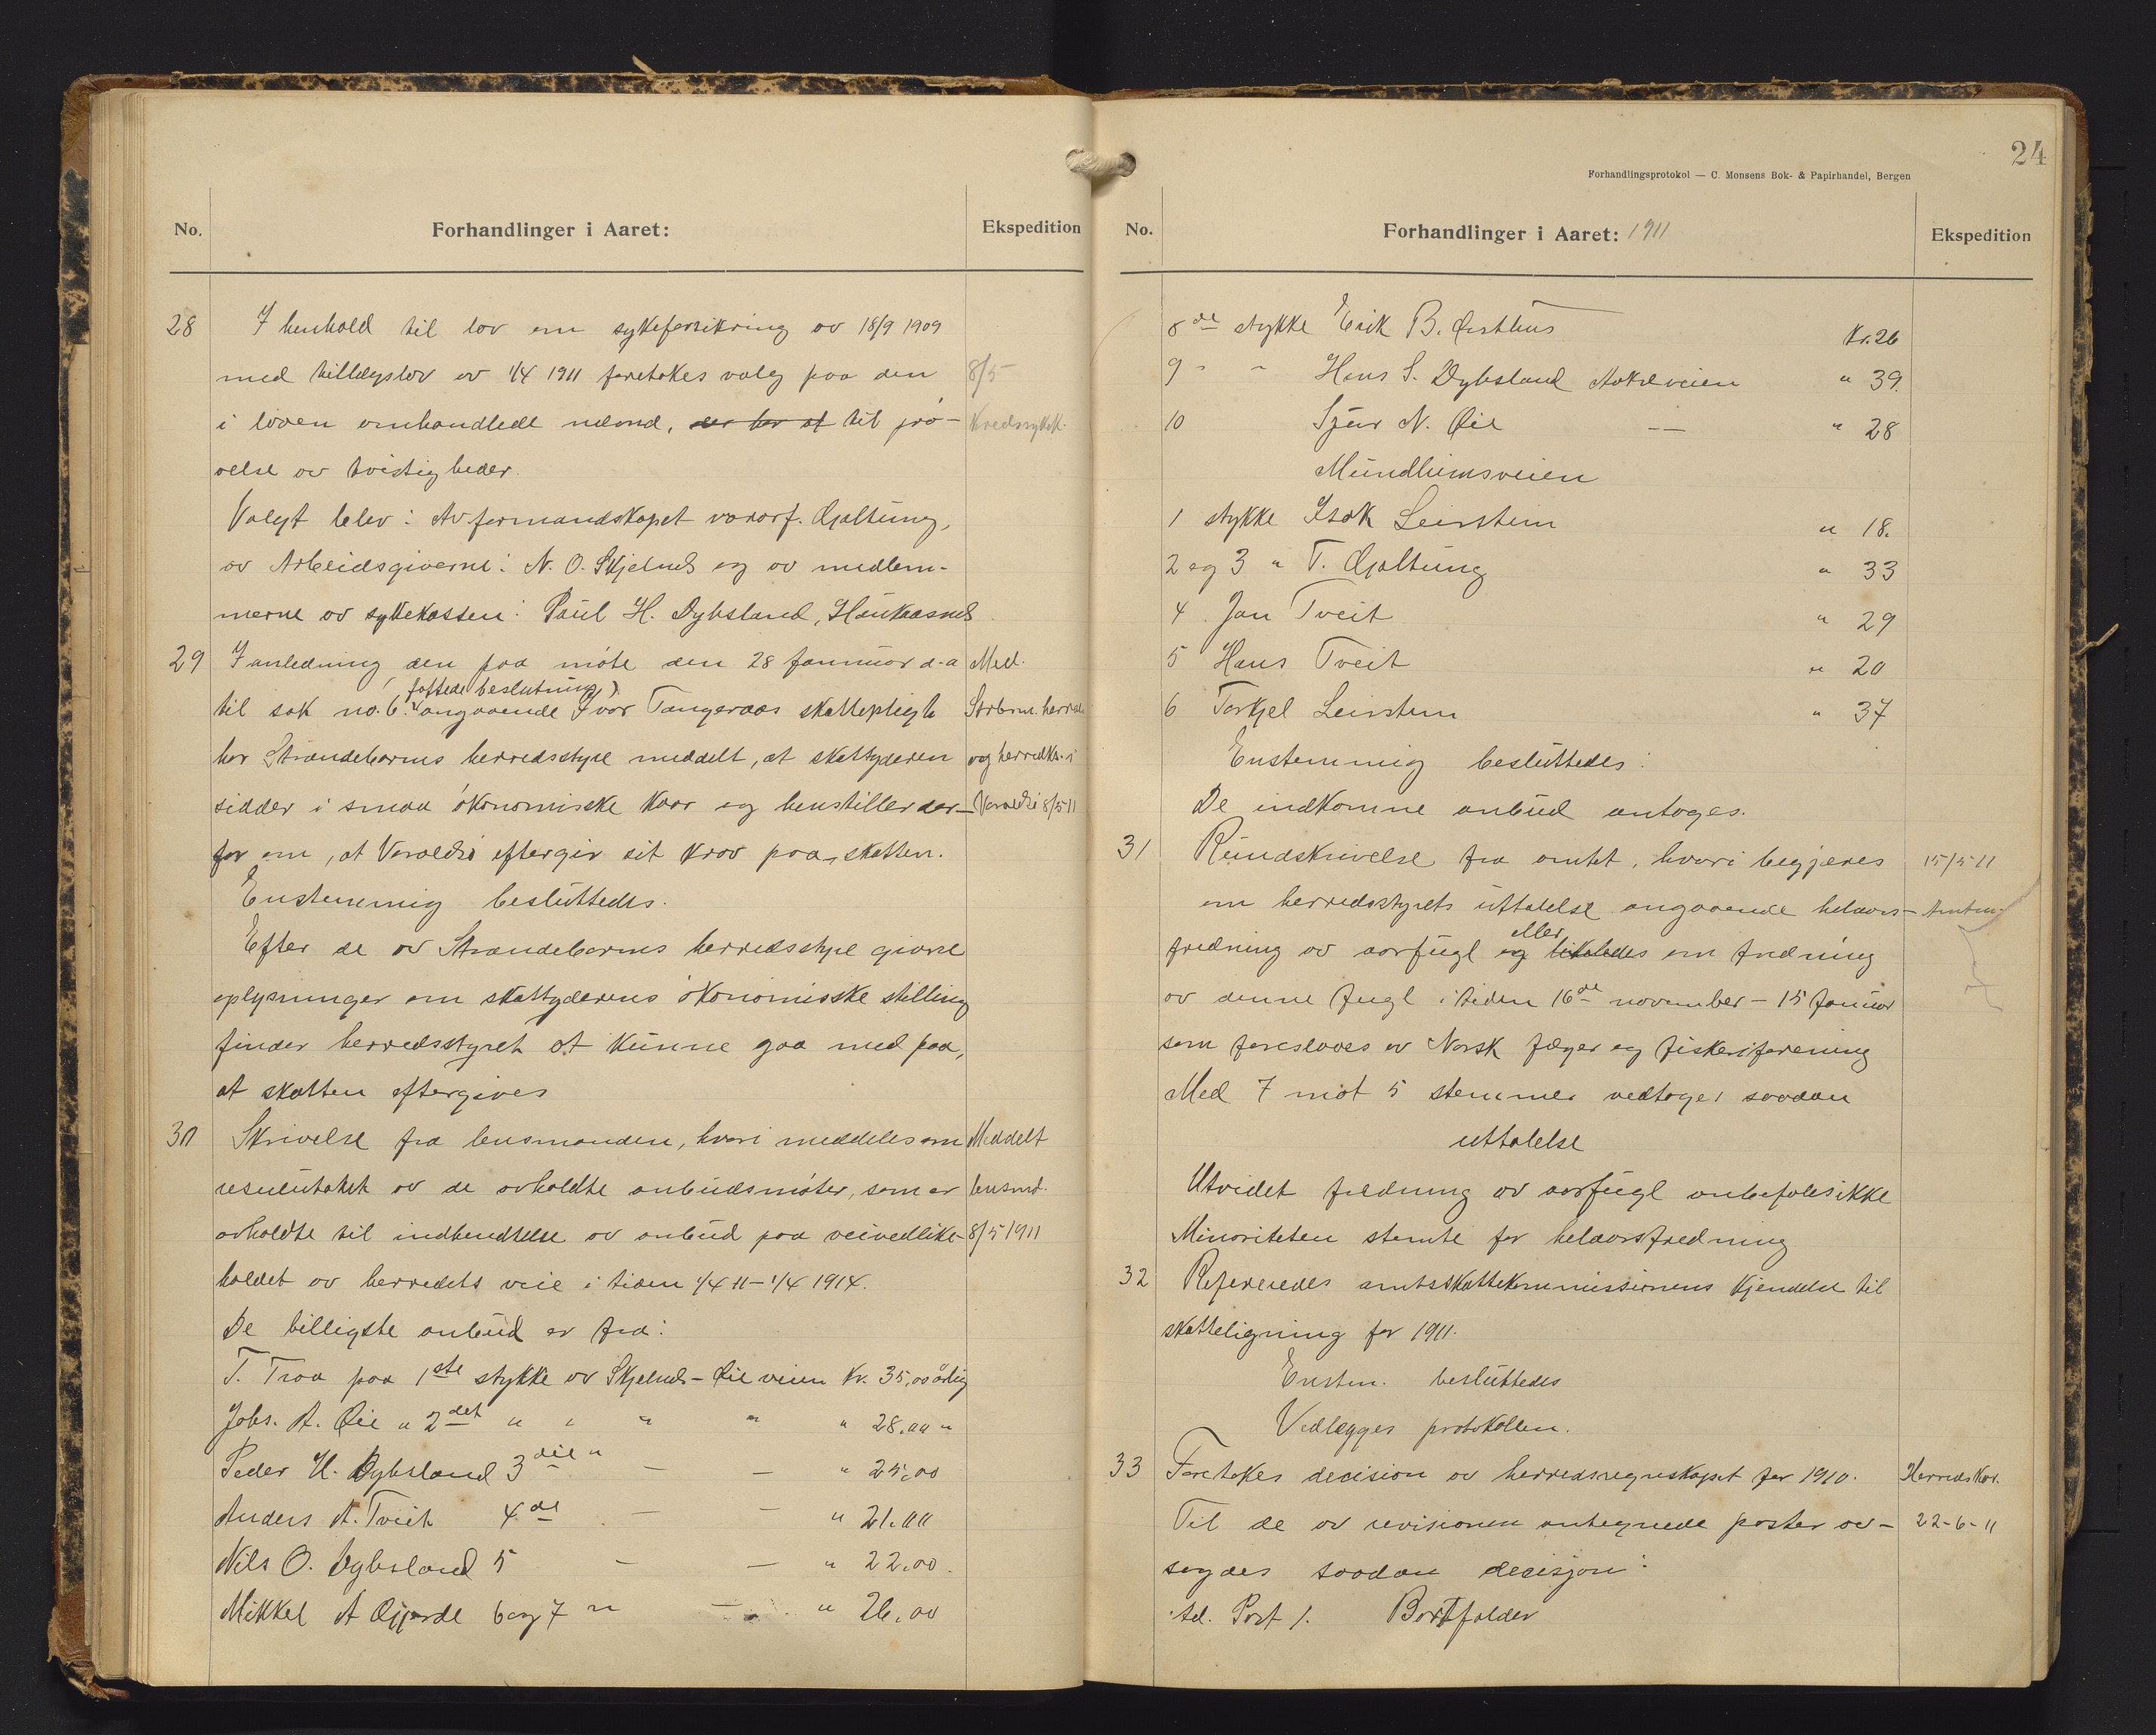 No. Forhandlinger i Aaret: Ekspedition
28 I henhold til lov om sykeforsikring av 18/9 1909
med tillægslov av 1/4 1911 foretokes valg paa den 8/5
i loven omhandlede nævnd, til prö- Kredssykek.
velse av tvistigheder.
Valgt blev: Av formandskapet varaorf. Gjaltung,
av Arbeidsgiverne: N. O. Skjelnes og av medlem-
merne av sykekassen: Paul H. Dybsland, Haukaasnes
29 I anledning den paa möte den 28 januar d.a Med.
fattede beslutning)
til sak no. 6. angaaende Ivar Tangeraas skattepligt Strbrm. herred
har Strandebarms herredsstyre meddelt, at skattyderen og herredsk. i
sidder i smaa ökonomiske kaar og henstiller der- Varaldsö 8/5 11
for om, at Varaldsö eftergir sit krav paa skatten.
Enstemmig besluttedes.
Efter de av Strandebarms herredsstyre givne
oplysninger om skattyderens ökonomiske stilling
finder herredsstyret at kunne gaa med paa,
at skatten eftergives
30 Skrivelse fra lensmanden, hvori meddeles om Meddelt
resulutatet av de avholdte anbudsmöter, som er lensmd.
avholdte til indhendtelse av anbud paa veivedlike- 8/5 1911
holdet av herredets veie i tiden 1/4 11 - 1/4 1914.
De billigste anbud er fra:
T. Traa paa 1ste stykke av Skjelnes - Öie veien Kr. 35,00 årlig
Johs. A. Öie " 2det " " " " " 28.00 "
Peder H. Dybsland 3die " — — " 25,00
Anders A. Tveit 4de — — " 21.00
Nils O. Dybsland 5 — — " 22.00.
Mikkel A Gjerde 6 og 7 " — " 26,00
24
Forhandlingsprotokol — C. Monsens Bok- & Papirhandel, Bergen
No. Forhandlinger i Aaret: 1911 Ekspedition
8de stykke Erik B. Östhus Kr. 26
9 " " Hans S. Dybsland " 39.
10 Sjur N. Öie — " 28
Mundheimsveien
1 stykke Isak Leirstein " 18.
2 og 3 " T. Gjaltung " 33
4 Jan Tveit " 29
5 Hans Tveit " 20
6 Torkjel Leirstein " 37
Enstemmig besluttedes:
De indkomne anbud antoges.
31 Rundskrivelse fra amtet, hvori begjæres 15/5 11
om herredsstyrets uttalelse angaaende helaars- Amtm.
eller
fredning av aarfugl og likeledes om fredning
av denne fugl i tiden 16de november - 15 januar
som foreslaaes av Norsk jæger og fiskeriforening
Med 7 mot 5 stemmer vedtoges saadan
uttalelse
Utvidet fredning av aarfugl anbefales ikke
Minoriteten stemte for helaarsfredning
32 Refereredes amtsskattekommissionens kjendelse til
skatteligning for 1911.
Enstem. besluttedes
Vedlægges protokollen.
33 Foretokes decision av herredsregnskapet for 1910. Herredskas.
Til de av revisionen antegnede poster av- 22-6-11
sagdes saadan decisjon:
Ad. Post 1. Bortfalder